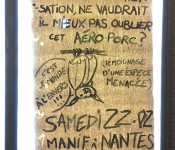 SATION, NE VAUDRAIT
IL MIEUX PAS OUBLIER
CET AÉRO PORC?
C'EST
LE MONDE
À L'ENVERS!!!
(TÉMOIGNAGE
D'UNE ESPÈCE
MENACÉE)
SAMEDI 22-02
MANIF À NANTES